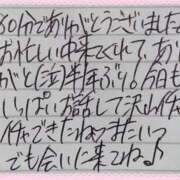 80分でありがとうございました
お忙しい中来てくれて、あり
がと(泣)半年ぶり!今日も
いっぱいお話して沢山イチャ
イチャできたねっまたいつ
でも会いに来てね♪